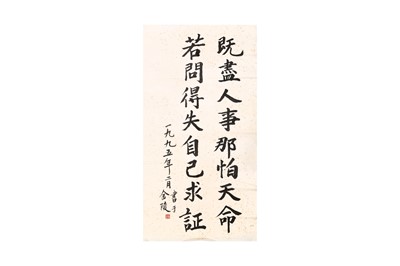 既盡人事那怕天命
若問得失自己求証
一九九五年二月書于金陵